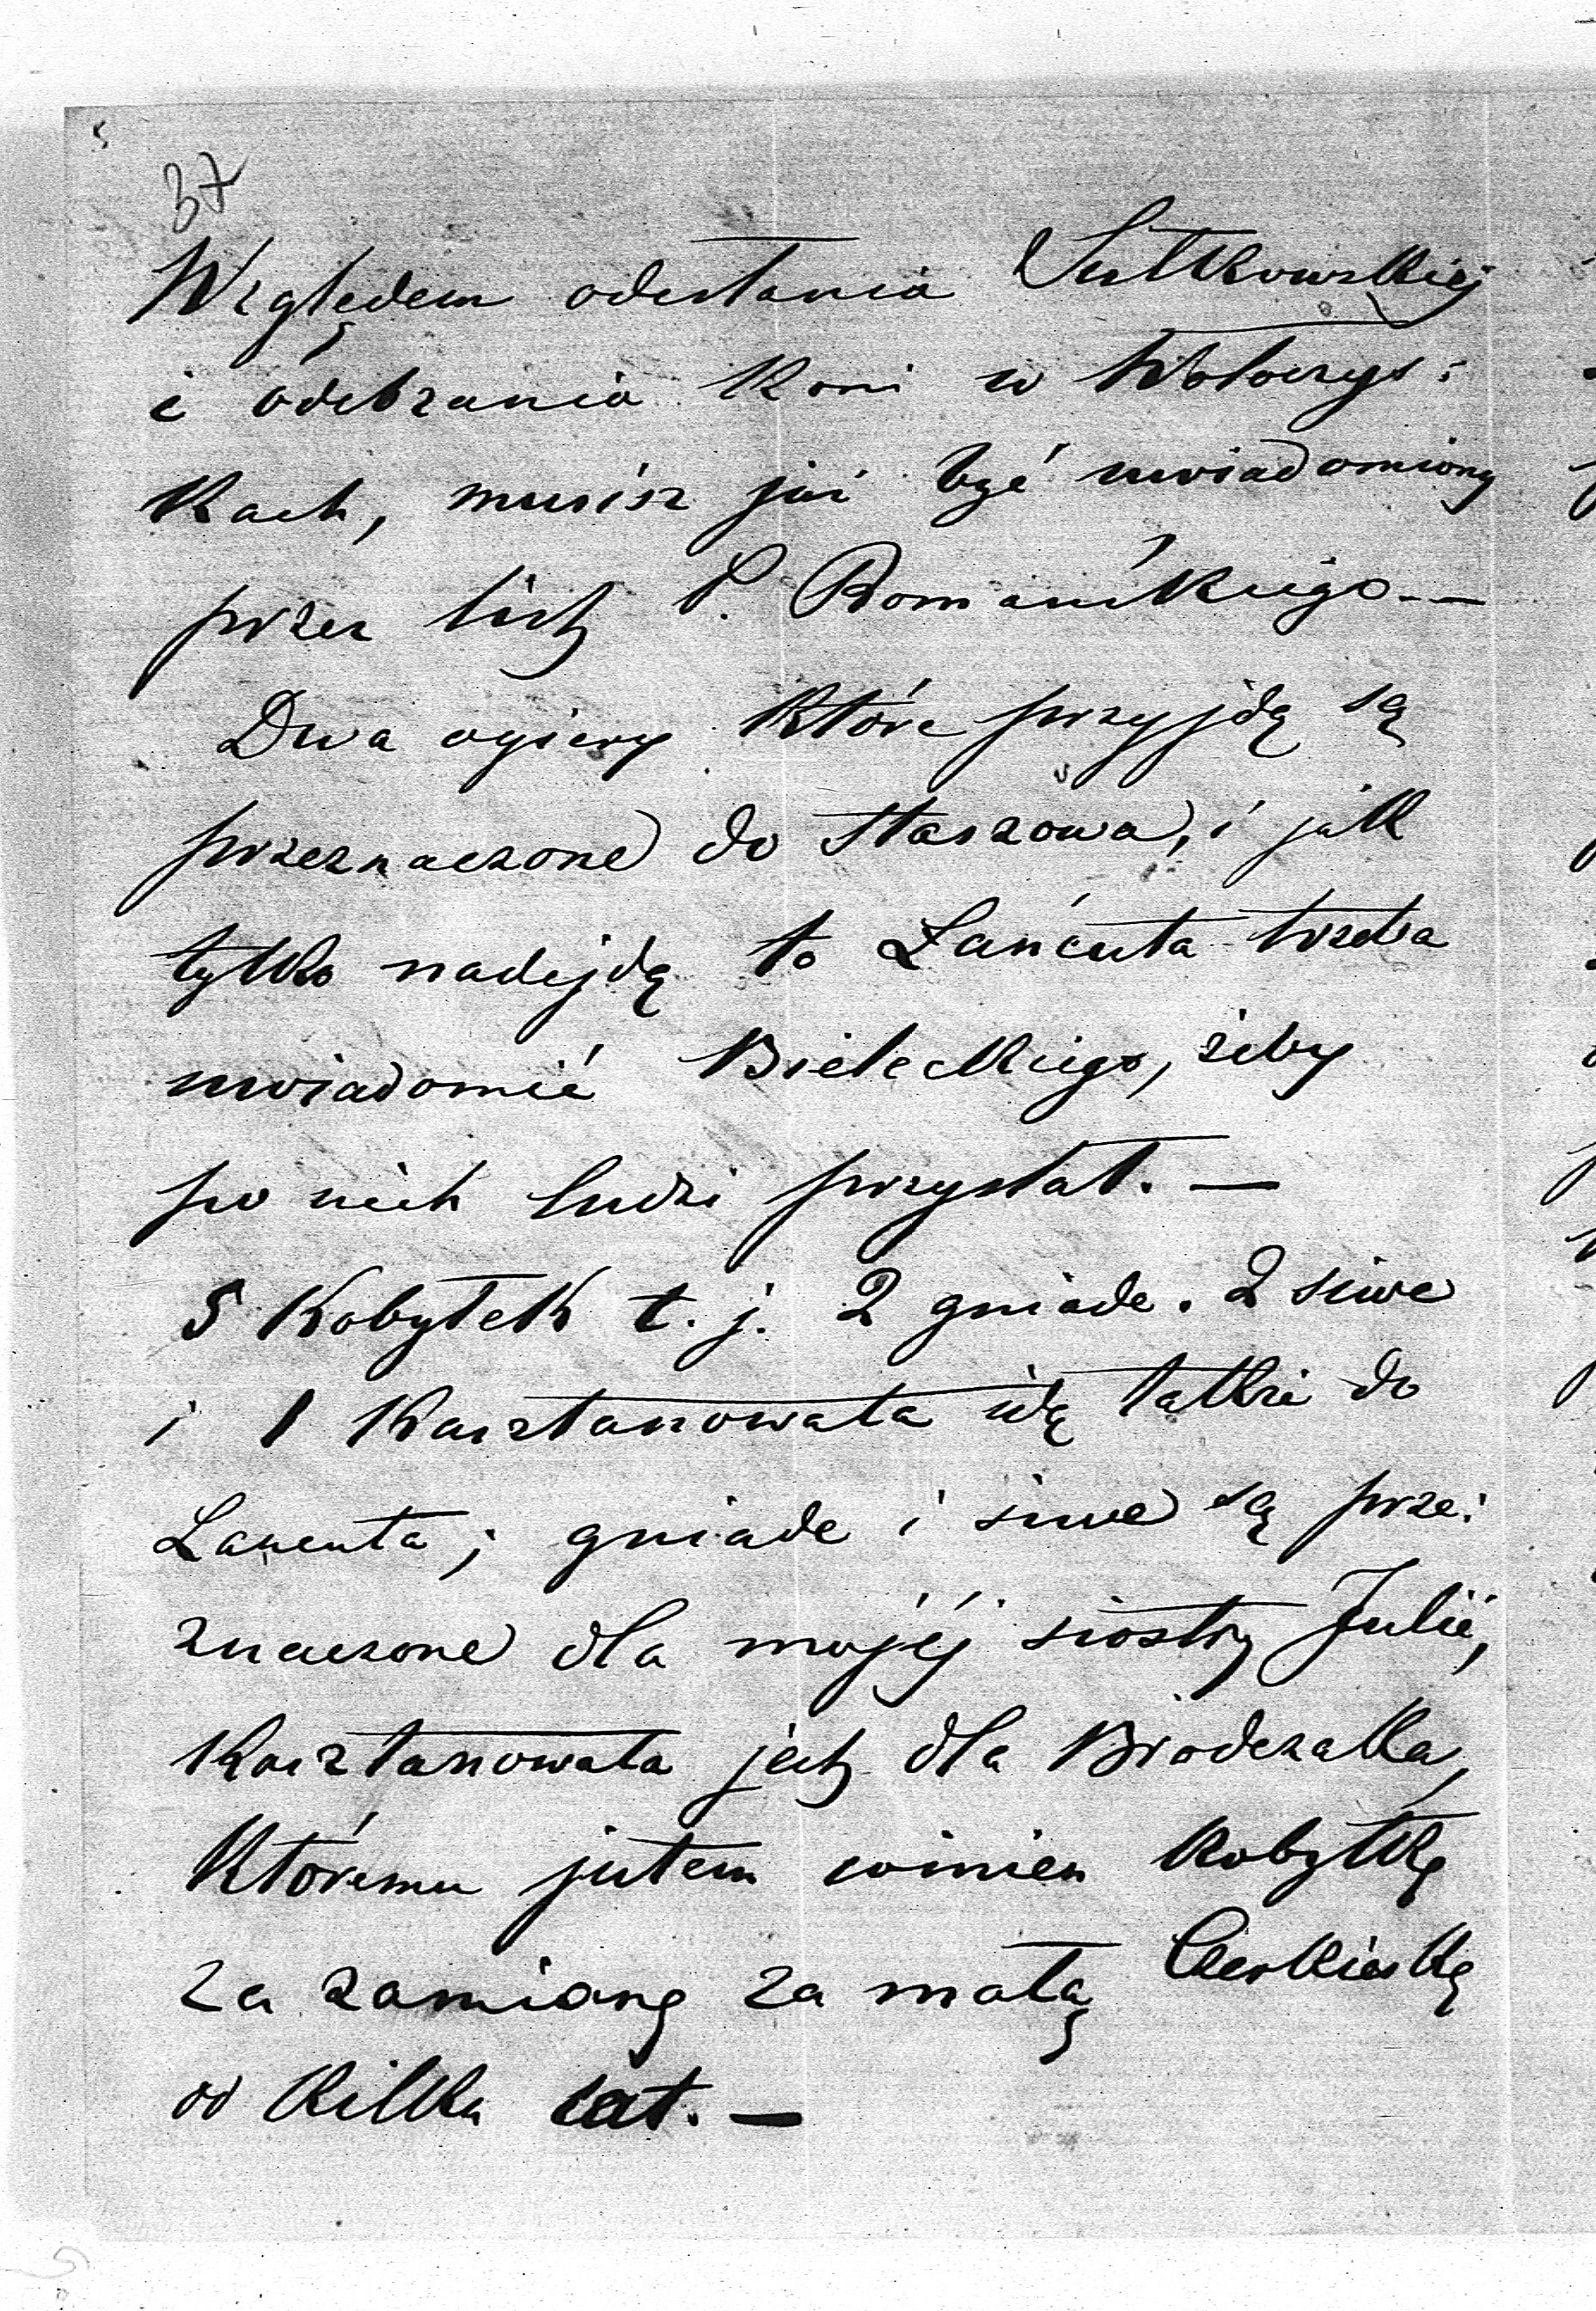 37
Względem odesłania Sułkowskiej
i odebrania koni w Wołoczys:
kach, musisz już być uwiadomiony
przez listy P. Romańskiego --
Dwa ogiery które przyjdą są
przeznaczone do Staszowa, i jak
tylko nadejdą to Łańcuta trzeba
uwiadomić Bieleckiego, żeby
po nich ludzi przysłał. —
5 Kobyłek t. j. 2 gniade. 2 siwe
i 1 Kasztanowata idą także do
Łancuta; gniade i siwe są prze:
znaczone dla mojéj siostry Julii,
Kasztanowata jest dla
Któremu jestem winien Kobyłkę
za zamianę za małą
od Kilku lat. —